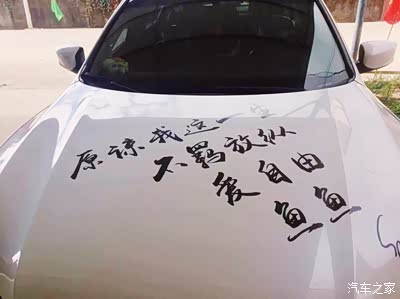 原谅我这一生
不羁放纵
爱自由
鱼鱼
汽车之家